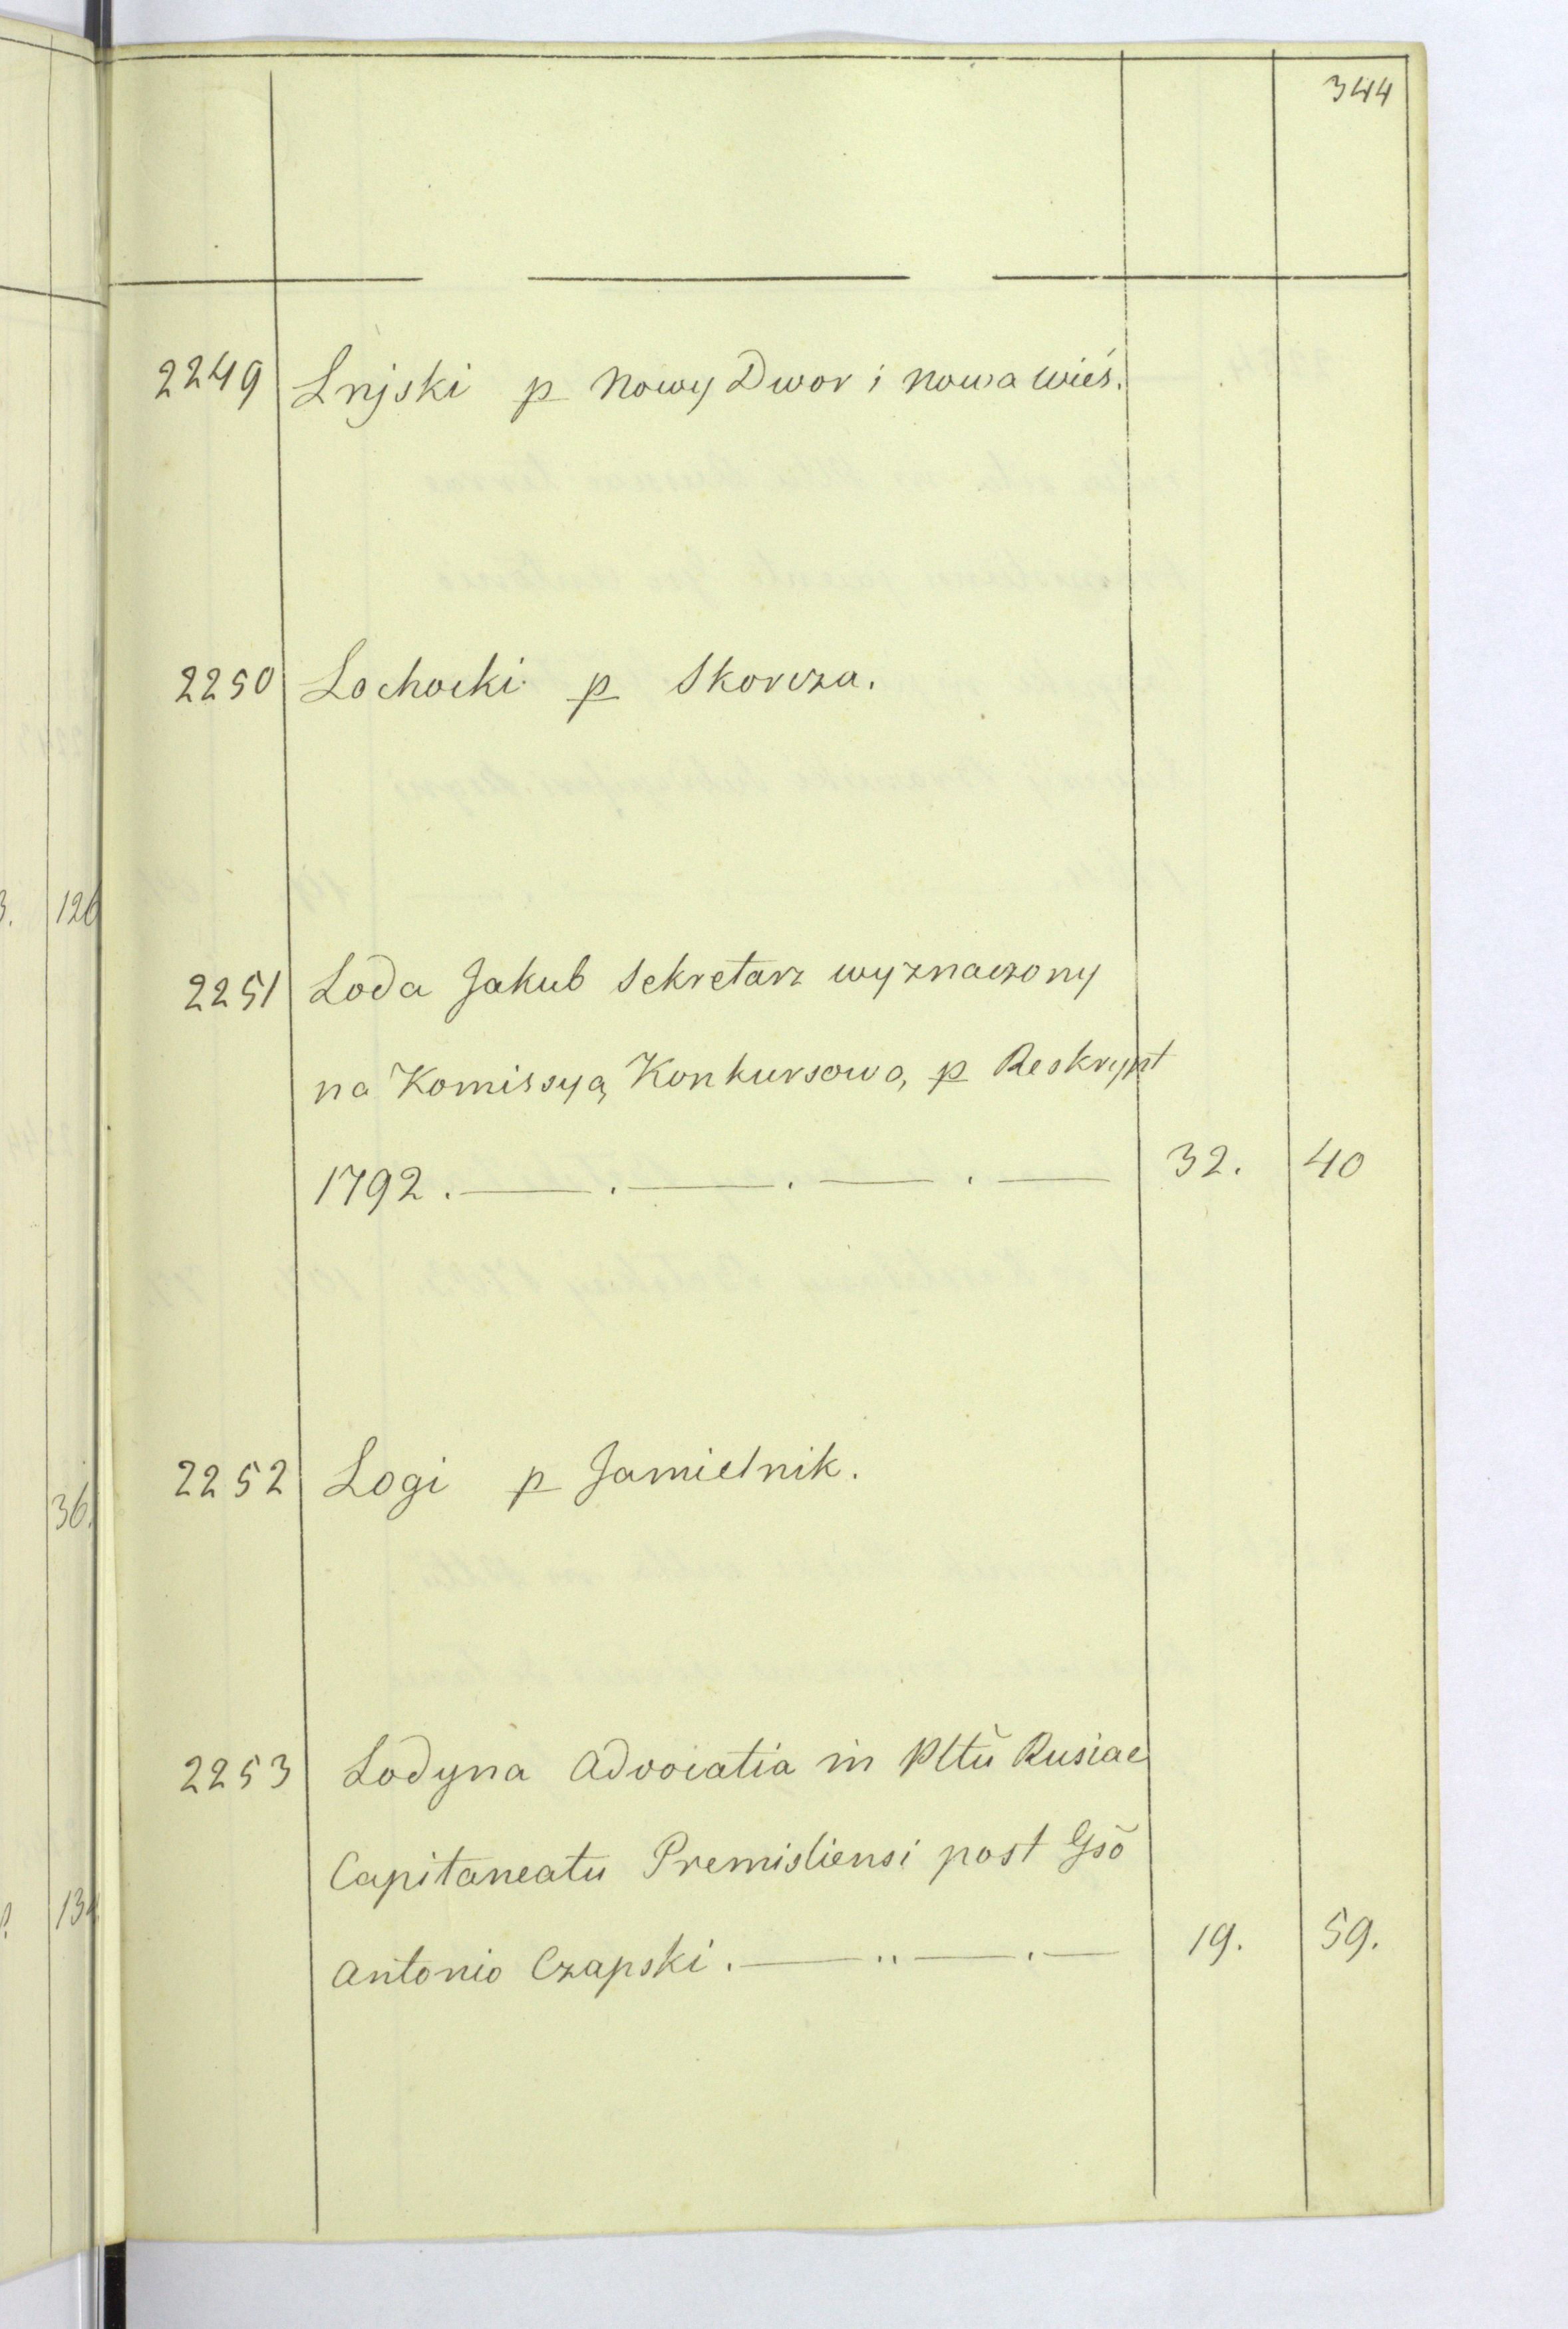 344
2249 Lnjski p Nowy Dwor i nowa wieś.
2250 Lochocki p Skorcza.
2251 Loda Jakub Sekretarz wyznaczony
na Komissyą Konkursowo, p Reskrypt
1792 . — . — . — . — 32. 40
2252 Logi p Jamielnik.
2253 Lodyna Advocatia in Pltŭ Rusiae
Capitaneatu Premisliensi post Gsŏ
Antonio Czapski . — .. — . — 19. 59.
126
36.